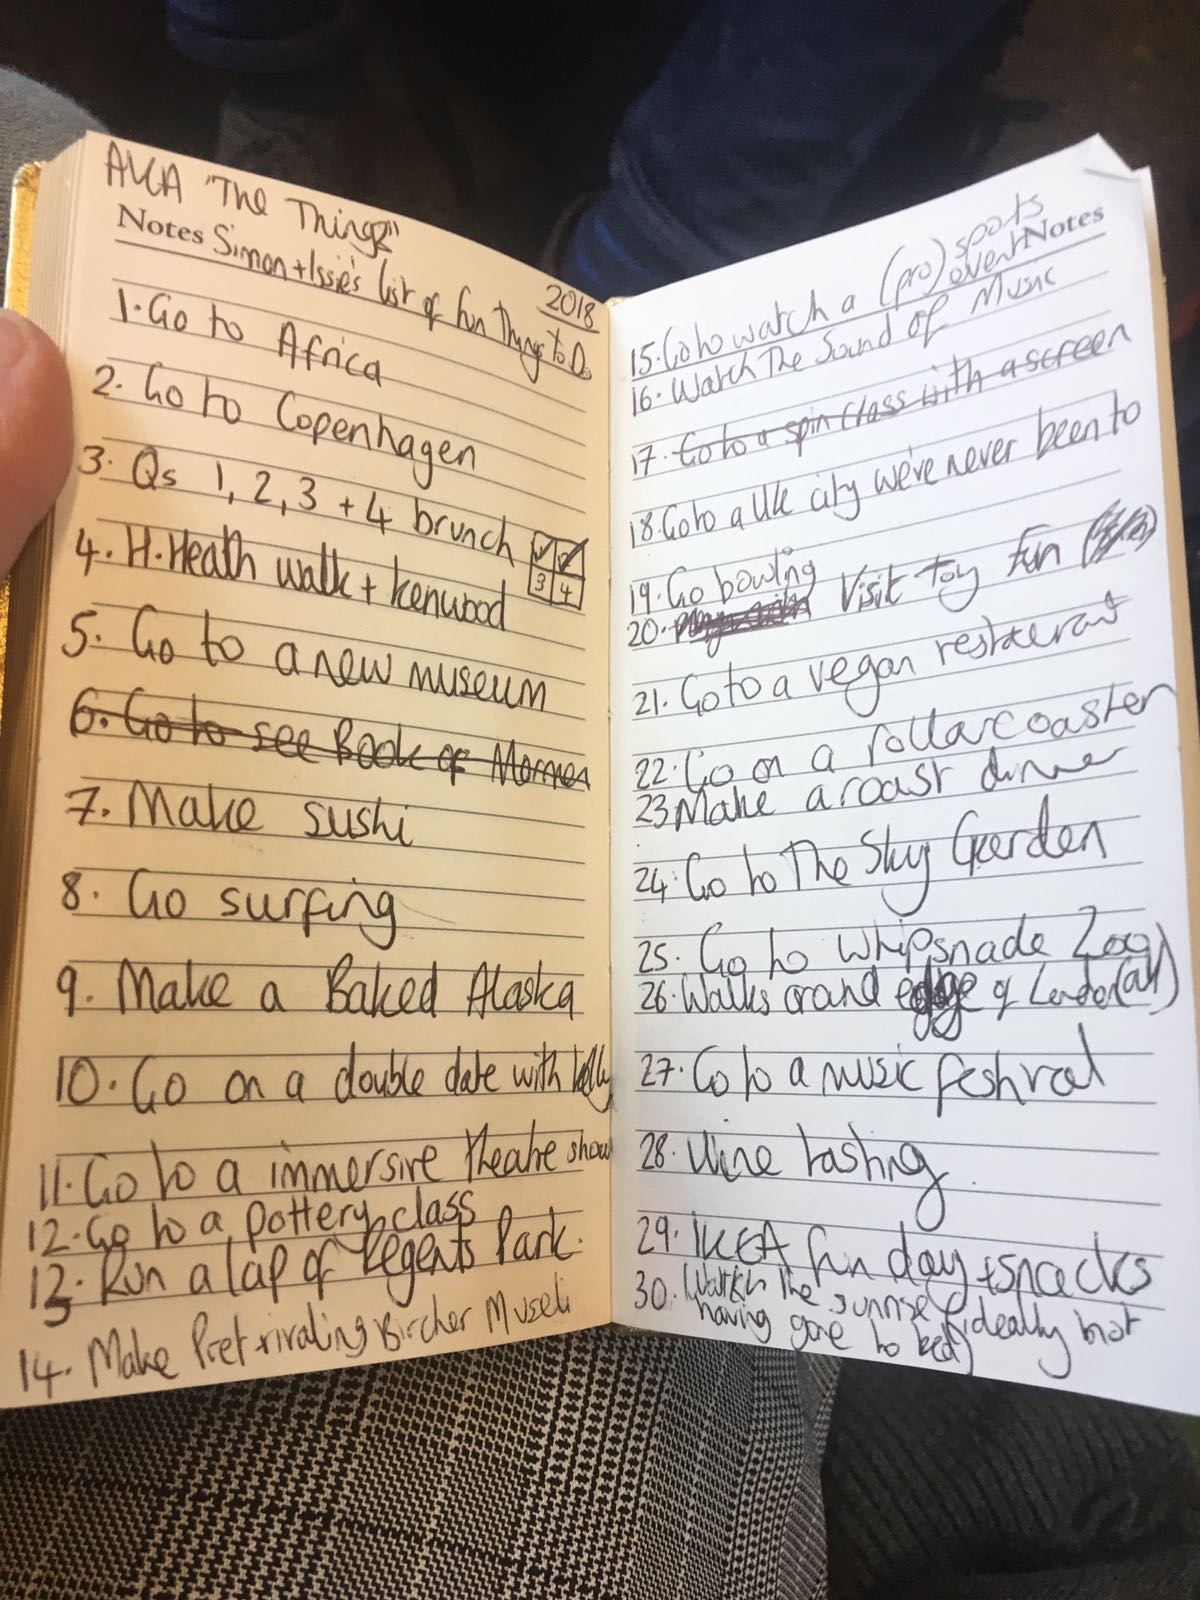 AKA "The Things"
Notes Simon + Issie's list of fun Things to Do
2018
1. Go to Africa
2. Go to Copenhagen
3. Qs 1, 2, 3 + 4 brunch
3 4
4. H. Heath walk + Kenwood
5. Go to a new museum
6. Go to see Book of Mormon
7. Make sushi
8. Go surfing
9. Make a Baked Alaska
10. Go on a double date with
11. Go to a immersive theatre show
12. Go to a pottery class
13. Run a lap of Regents Park.
14. Make Pret-rivaling Bircher Museli
Notes
15. Go to watch a (pro) sports event
16. Watch The Sound of Music
17. Go to a spin class with a screen
18. Go to a UK city we've never been to
19. Go bowling
20. Visit toy fun
21. Go to a vegan restaurant
22. Go on a rollarcoaster
23 Make a roast dinner
24. Go to The Sky Garden
25. Go to Whipsnade Zoo
26. Walks around edge of London (all)
27. Go to a music festival
28. Wine tasting
29. IKEA fun day + snacks
30. Watch the sunrise (ideally not
having gone to bed)